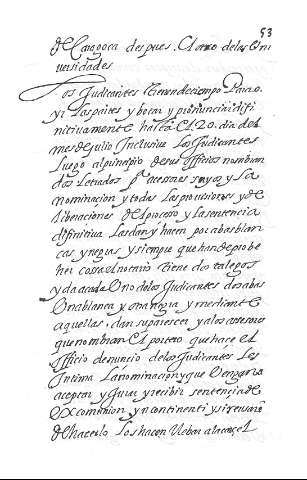 53
de Caragoca despues. El otro de las Uni
uersidades
Los Judicantes tienen de tiempo Para o
yr Las partes y botar y pronunciar difi
nitiuamente hasta El 20. dia del
mes de Julio Inclusiue Los Judicantes
Luego al principio de sus officios nombran
dos Letrados Pª acesores suyos y La
nominacion y todas Las prouissiones y de
liberaciones del processo y La sentencia
difinitiua Las dan y hacen por abas blan
cas y negras y siempre que han de probe
her cossa El notario tiene dos talegos
y da a cada Uno de los Judicantes dos abas
Una blanca y otra negra y mediante
aquellas, dan su parescer y a los assesores
que nombran El portero que hace El
officio denuncio de los Judicantes Les
Intima La nominacion y que Vengan a
aceptar y Jurar y recibir sentencia de
excomunion y incontinenti y si recusaren
de hacerlo Los hacen llebar a la carcel